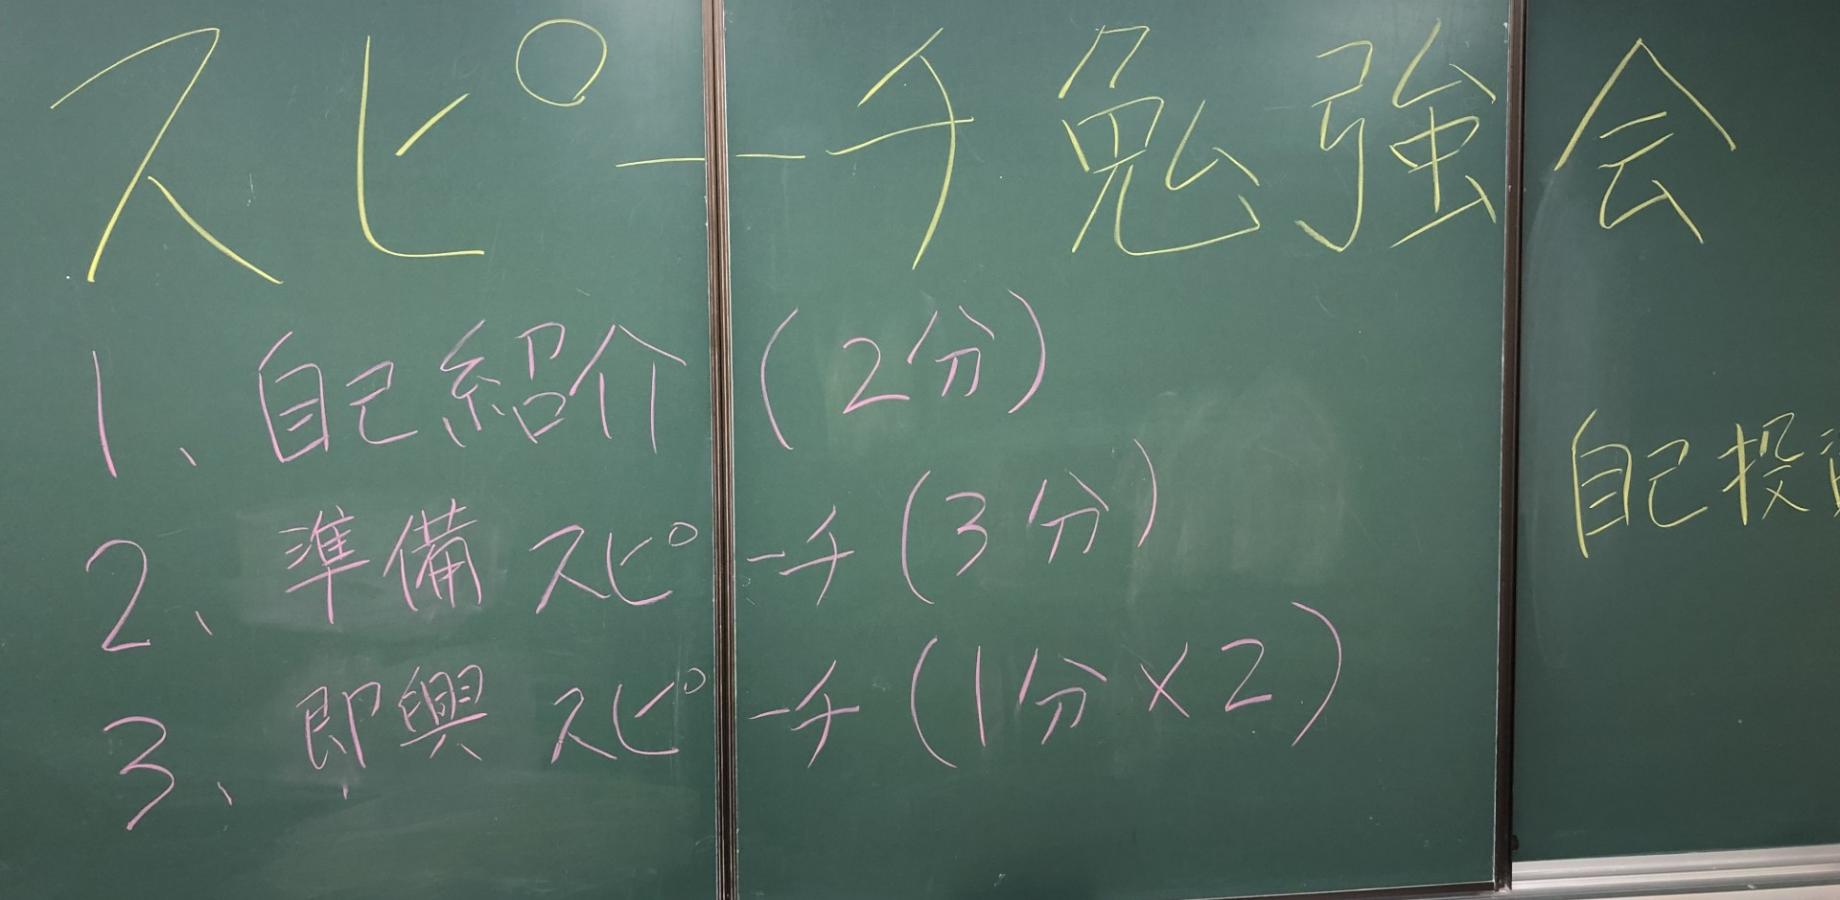 スピーチ勉強会
1、自己紹介(2分)
2、準備スピーチ(3分)
3、即興スピーチ(1分×2)
自己投